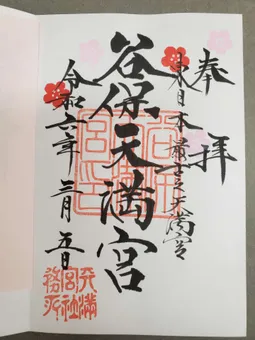 奉拝
東日本最古之天満宮
谷保天満宮
令和六年三月五日
天満
宮社
務所